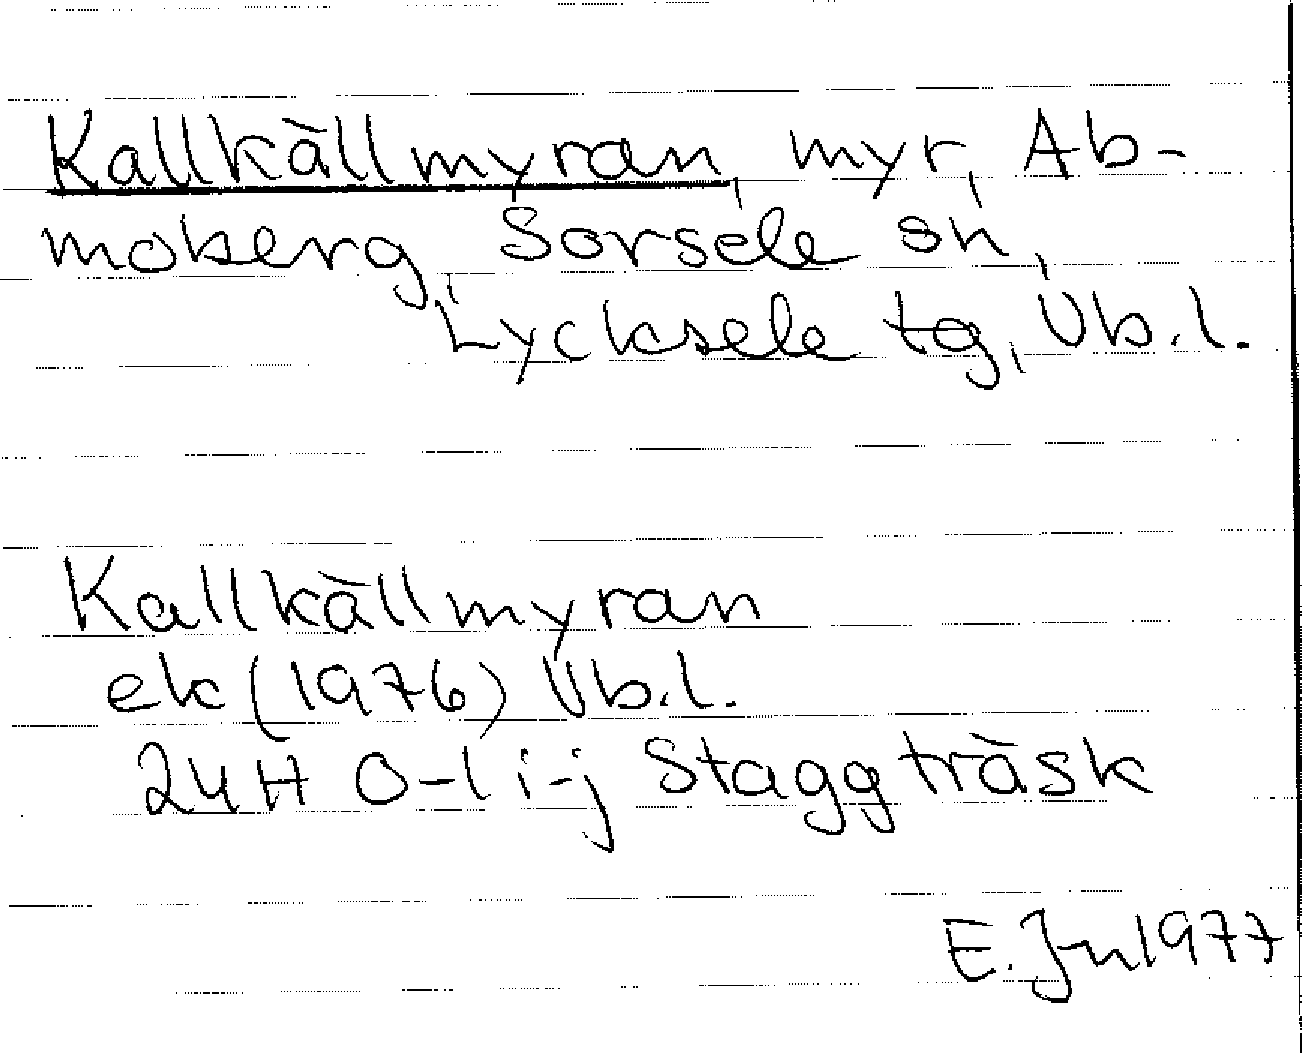 Kallkällmyran, myr, Ab-
moberg, Sorsele sn,
Lycksele tg, Vb.l.
Kallkällmyran
ek (1976) Vb.l.
24H 0-1 i-j Staggträsk
E. Jn 1977